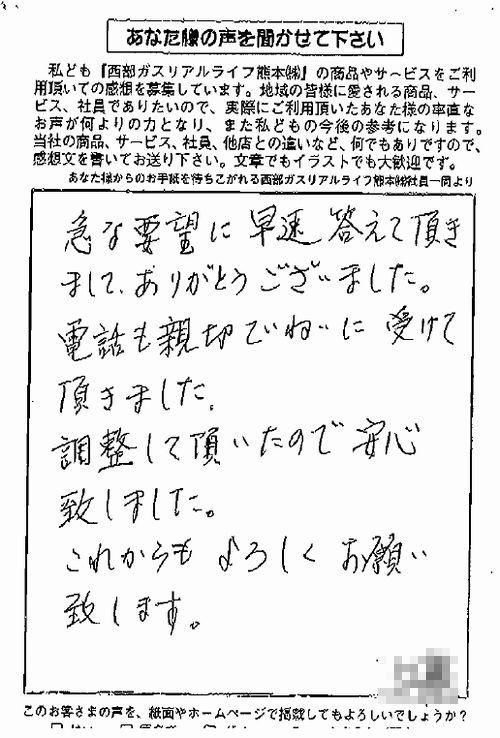 あなた様の声を聞かせて下さい
私ども『西部ガスリアルライフ熊本㈱』の商品やサービスをご利
用頂いての感想を募集しています。地域の皆様に愛される商品、サー
ビス、社員でありたいので、実際にご利用頂いたあなた様の率直な
お声が何よりの力となり、また私どもの今後の参考になります。
当社の商品、サービス、社員、他店との違いなど、何でもありですので、
感想文を書いてお送り下さい。文章でもイラストでも大歓迎です。
あなた様からのお手紙を待ちこがれる西部ガスリアルライフ熊本㈱社員一同より
急な要望に早速答えて頂き
まして、ありがとうございました。
電話も親切でいねいに受けて
頂きました。
調整して頂いたので安心
致しました。
これからもよろしくお願い
致します。
このお客さまの声を、紙面やホームページで掲載してもよろしいでしょうか?